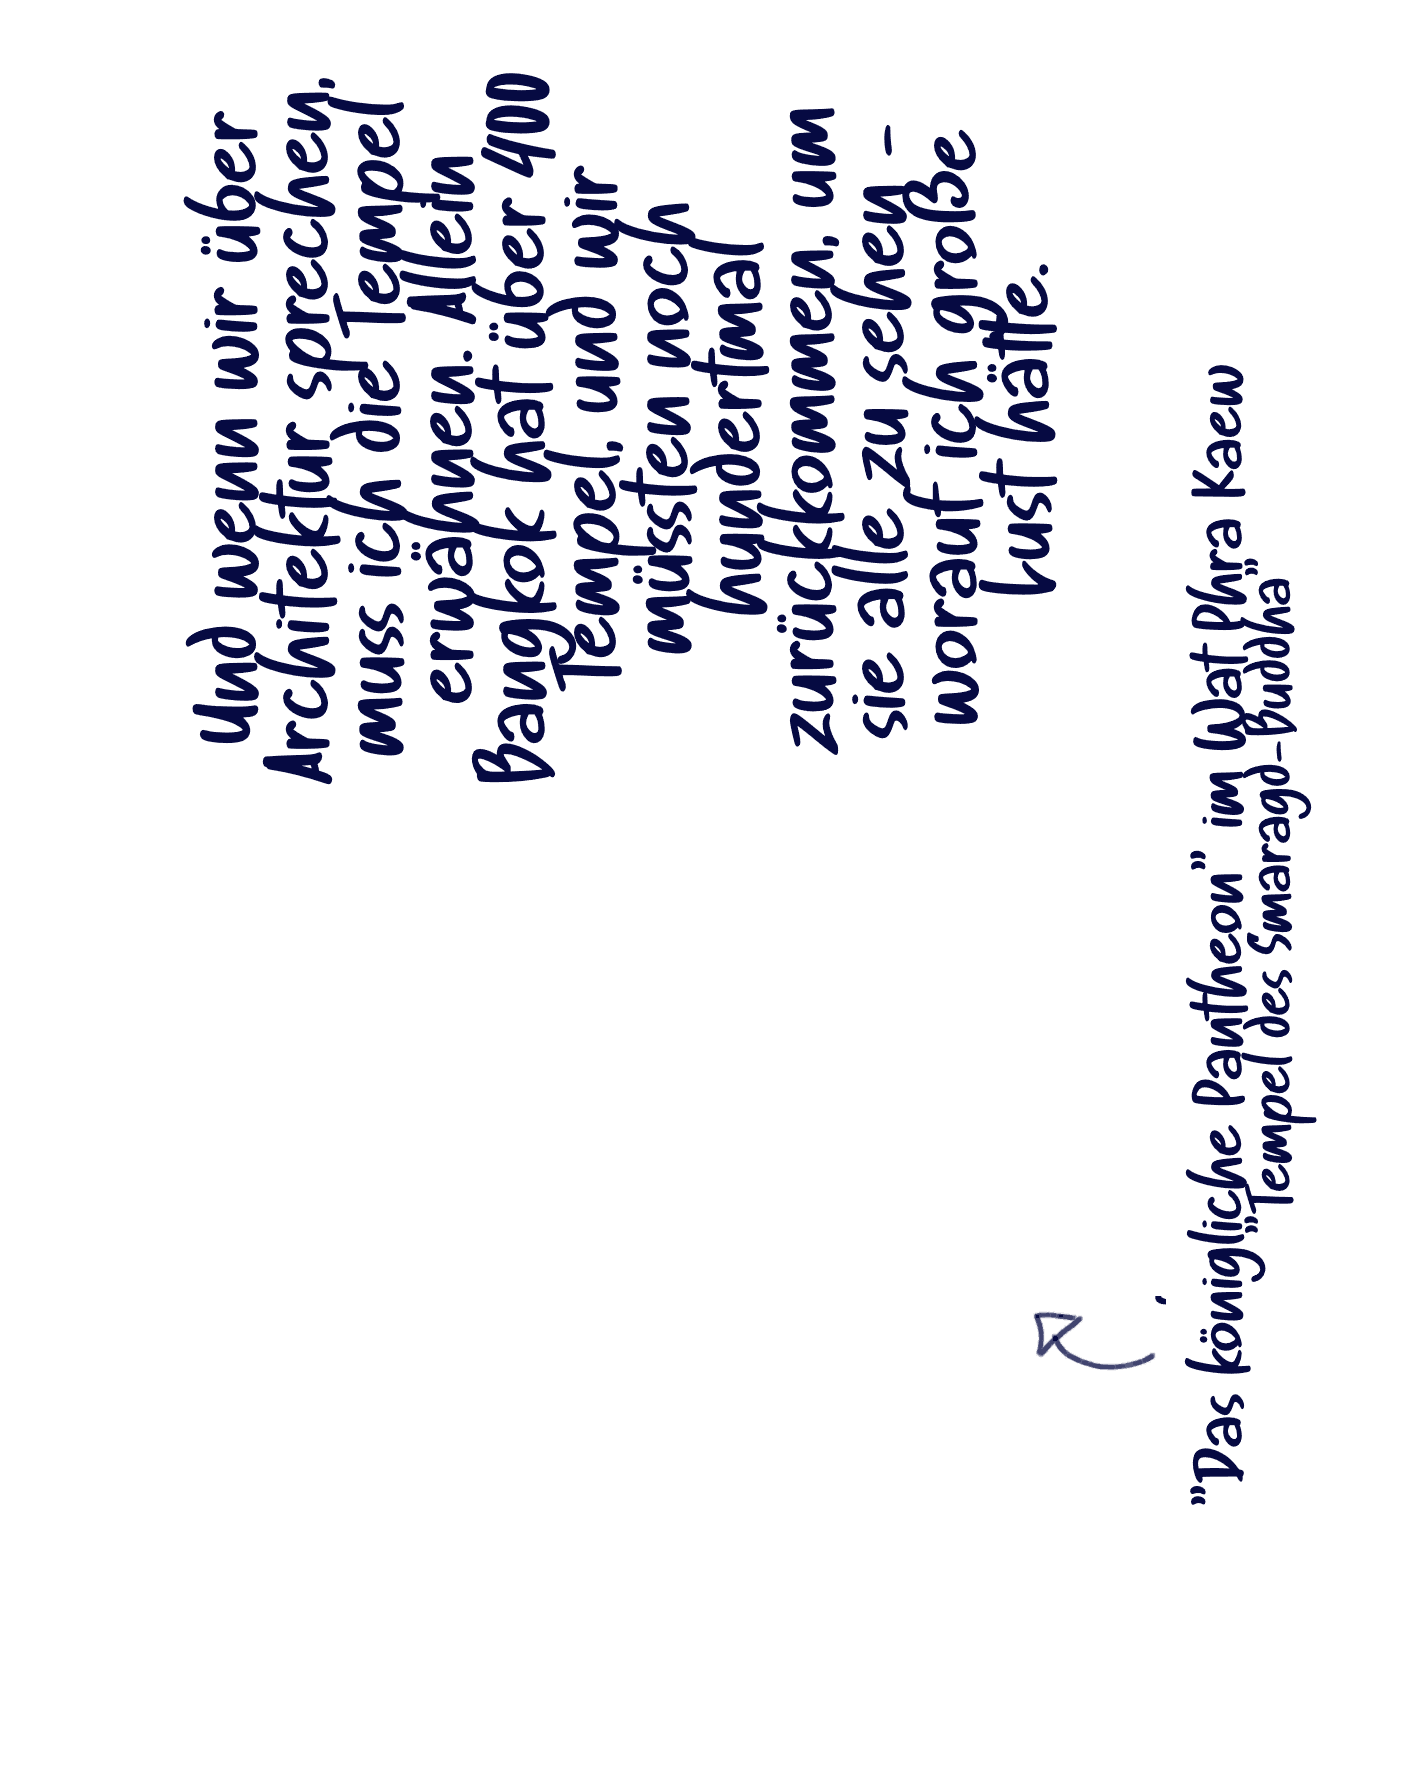 Und wenn wir über
Architektur sprechen,
muss ich die Tempel
erwähnen. Allein
Bangkok hat über 400
Tempel, und wir
müssten noch
hundertmal
zurückkommen, um
sie alle zu sehen -
worauf ich große
Lust hätte.
"Das königliche Pantheon" im Wat Phra Kaew
"Tempel des Smaragd-Buddha"